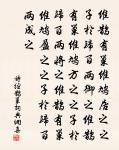 維鵲有巢維鳩居之之
子于歸百兩御之維鵲
有巢維鳩方之之子于
歸百兩將之維鵲有巢
維鳩盈之之子于歸百
兩成之
詩經鵲巢